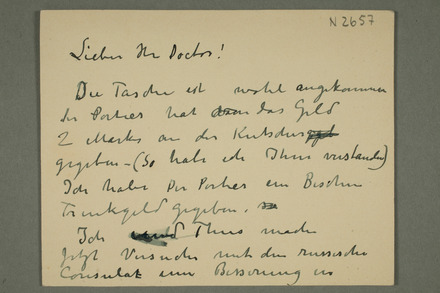 N 2657
Lieber Hr Doctor!
Die Tasche ist wohl angekommen
der Portier hat das Geld
2 Mark an den Kutscher
gegeben – (So habe ich Ihnen verstanden)
Ich habe Den Portier ein Bischen
Trinkgeld gegeben.
Ich Thuns machen
Jetzt Versuche mit dem russischen
Consulat eine Besserung in